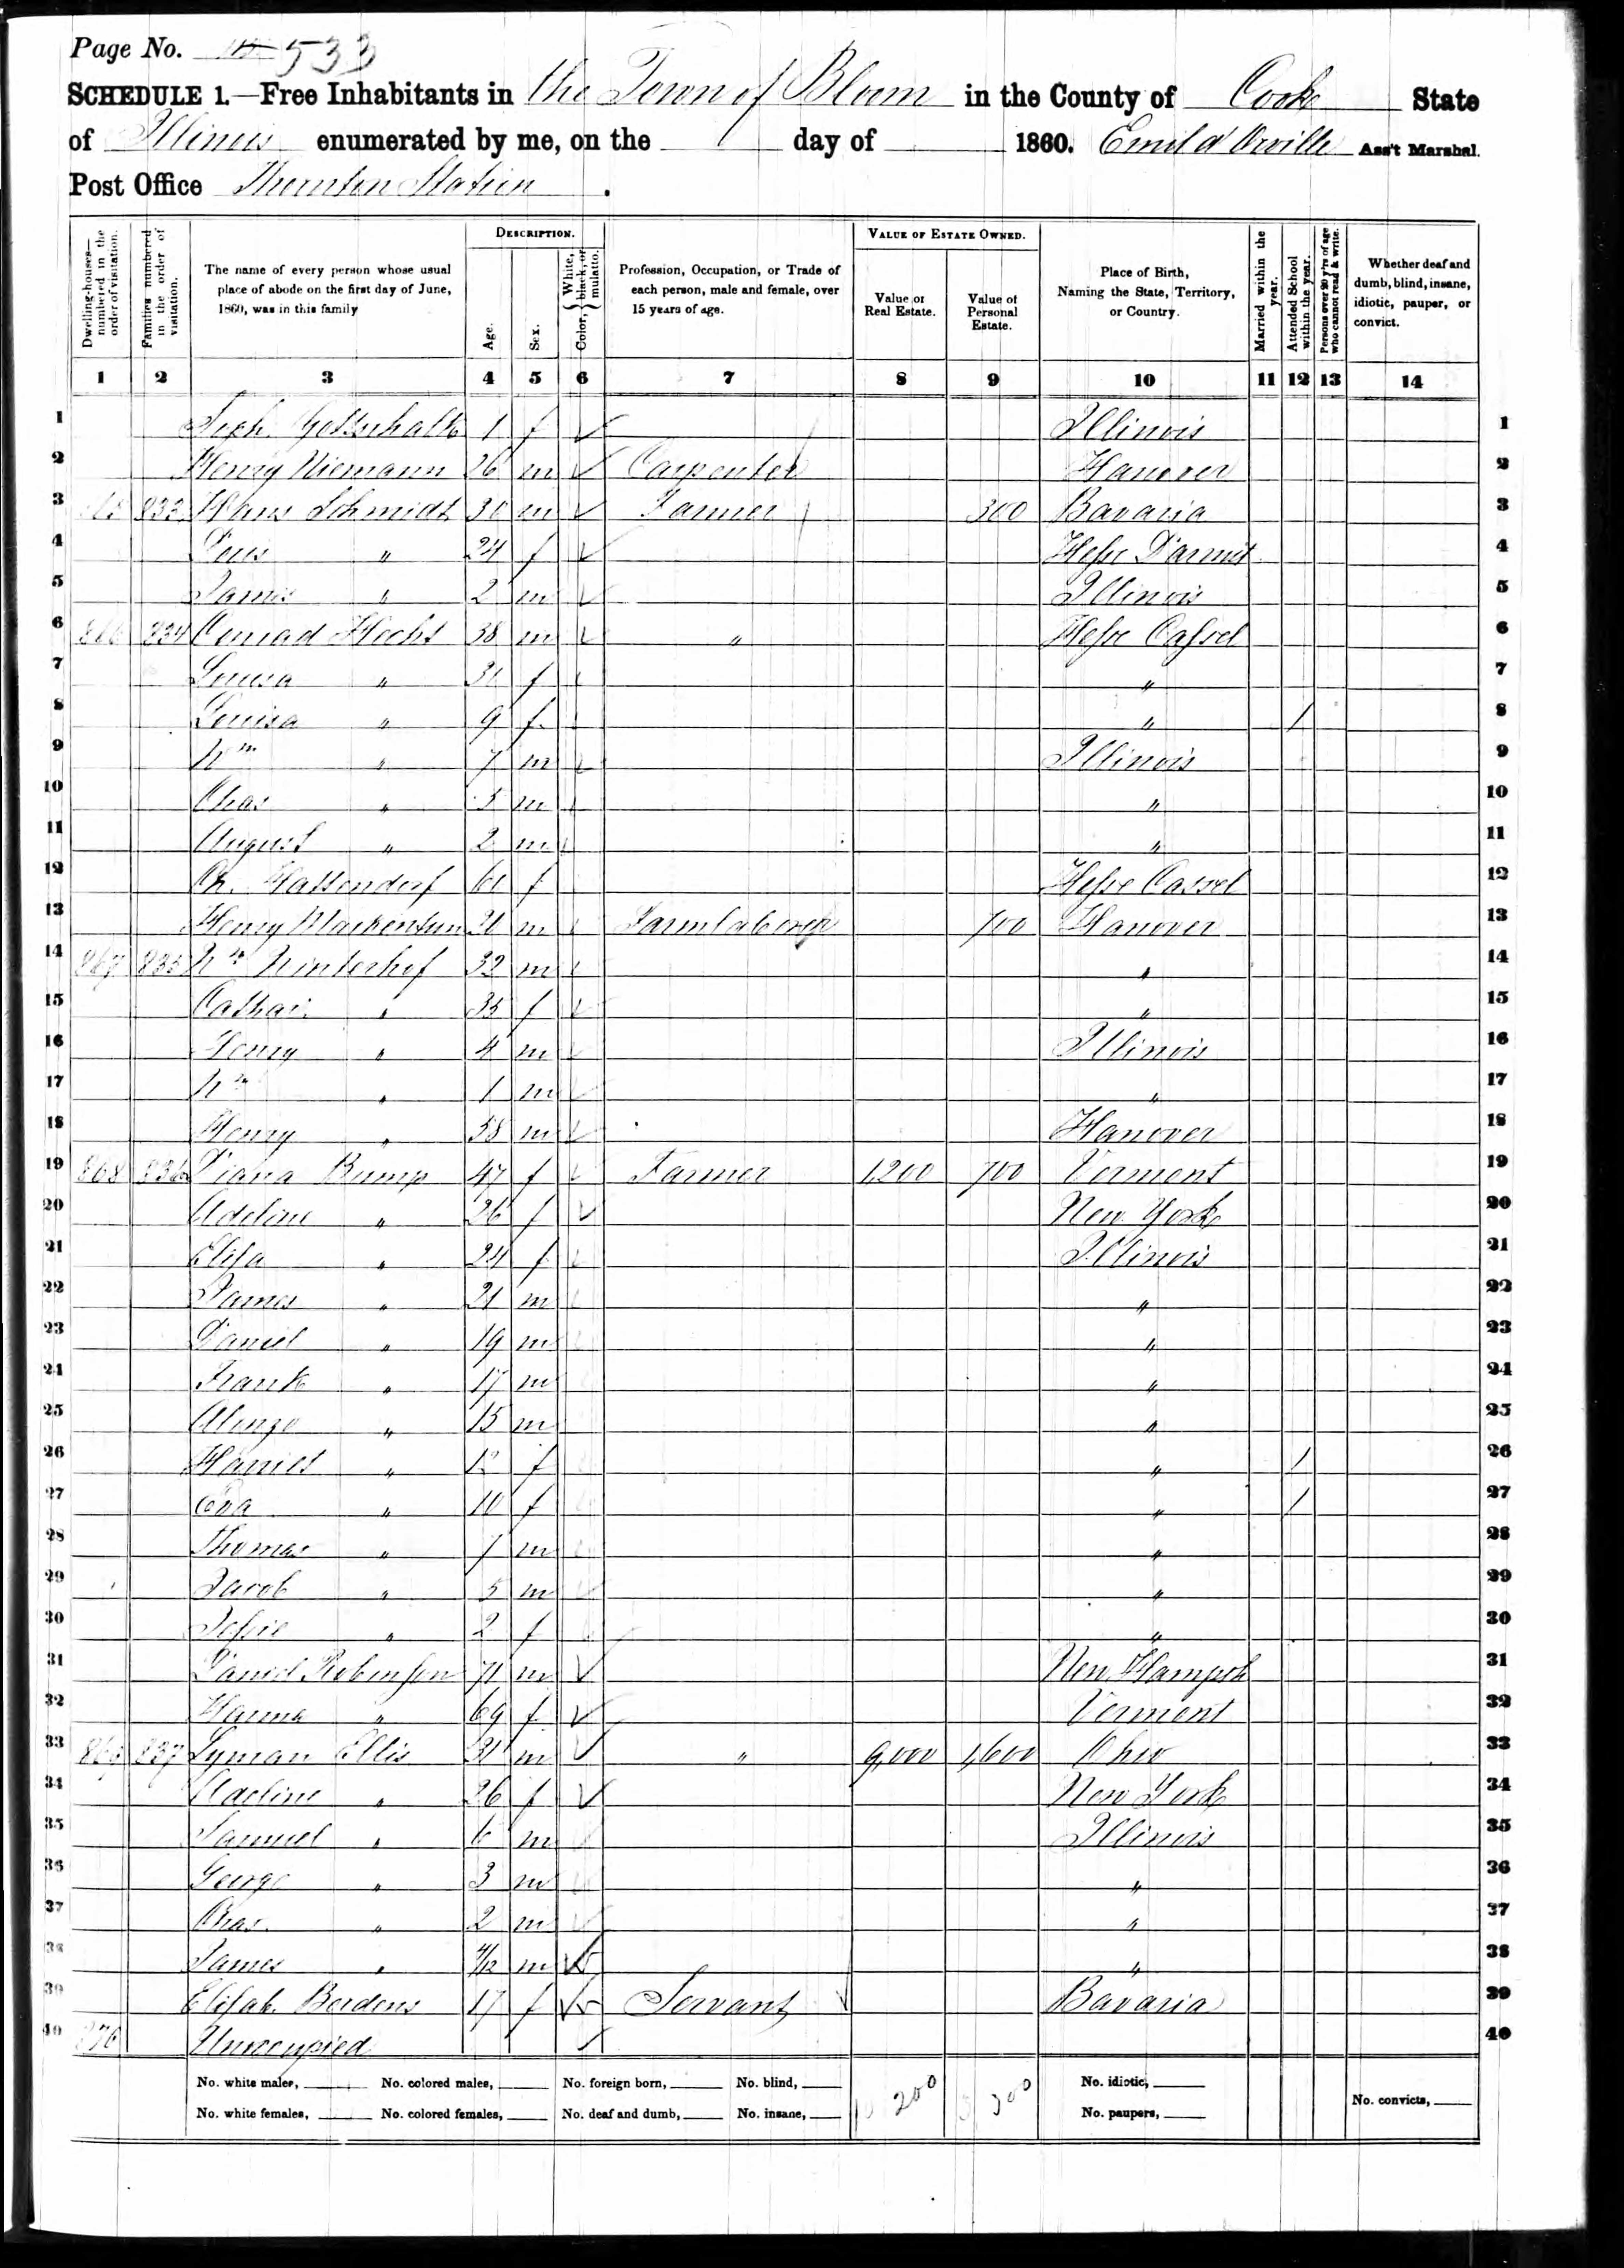 Page No. 533
SCHEDULE 1.—Free Inhabitants in the Town of Bloom in the County of Cook State
of Illinois enumerated by me, on the day of 1860. Emil d'Orville Ass't Marshal.
Post Office Thornton Station.
Dwelling-houses—numbered in the order of visitation.
Families numbered in the order of visitation.
The name of every person whose usual place of abode on the first day of June, 1860, was in this family
DESCRIPTION.
Age.
Sex.
Color, { White, black, or mulatto.
Profession, Occupation, or Trade of each person, male and female, over 15 years of age.
VALUE OF ESTATE OWNED.
Value of Real Estate.
Value of Personal Estate.
Place of Birth, Naming the State, Territory, or Country.
Married within the year.
Attended School within the year.
Persons over 20 y'rs of age who cannot read & write.
Whether deaf and dumb, blind, insane, idiotic, pauper, or convict.
1 2 3 4 5 6 7 8 9 10 11 12 13 14
1 Soph. Gottschalk 1 f Illinois 1
2 Henry Niemann 26 m Carpenter Hanover 2
3 833 Hans Schmidt 30 m Farmer 300 Bavaria 3
4 " 24 f Hesse Darmst 4
5 " 2 m Illinois 5
6 866 834 Conrad Hecht 38 m " Hesse Cassel 6
7 Louisa " 31 f " 7
8 Louisa " 9 f " / 8
9 Wm " 7 m Illinois 9
10 Chas " 5 m " 10
11 August " 2 m " 11
12 Ch. Hattendorf 60 f Hesse Cassel 12
13 Henry 20 m Farmlaborer 700 Hanover 13
14 867 835 Wm Winterhof 32 m " 14
15 Cathar. " 35 f " 15
16 Henry " 4 m Illinois 16
17 Wm " 1 m " 17
18 Henry " 38 m Hanover 18
19 868 836 Diana Bump 47 f Farmer 1,200 700 Vermont 19
20 Adeline " 26 f New York 20
21 Elisa " 24 f Illinois 21
22 James " 21 m " 22
23 Daniel " 19 m " 23
24 Frank " 17 m " 24
25 Alonzo " 15 m " 25
26 Harriet " 12 f " / 26
27 Eva " 10 f " / 27
28 Thomas " 7 m " 28
29 Jacob " 5 m " 29
30 Jessie " 2 f " 30
31 Daniel Robinson 71 m New Hampsh 31
32 Hanna " 69 f Vermont 32
33 869 837 Lyman Ellis 31 m " 9,000 1,600 Ohio 33
34 Adeline " 26 f New York 34
35 Samuel " 6 m Illinois 35
36 George " 3 m " 36
37 Chas. " 2 m " 37
38 James " 4/12 m " 38
39 Elisab. Berdens 17 f Servant Bavaria 39
40 870 Unoccupied 40
No. white males, No. colored males, No. foreign born, No. blind, No. idiotic,
No. white females, No. colored females, No. deaf and dumb, No. insane, No. paupers, No. convicts,